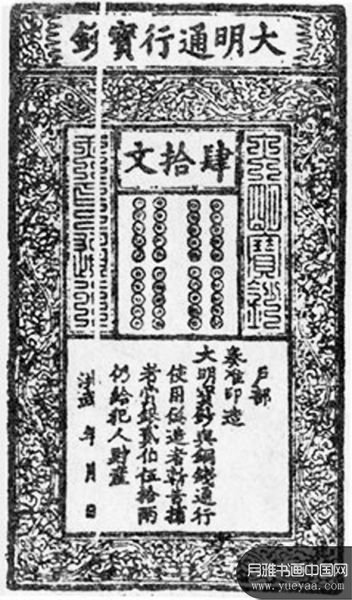 大明通行寶鈔
肆拾文
大明寶鈔
天下通行
戶部
奏准印造
大明寶鈔與銅錢通行
使用偽造者斬告捕
者賞銀貳伯伍拾兩
仍給犯人財產
洪武 年 月 日
月雅书画中国网
www.yueyaa.com